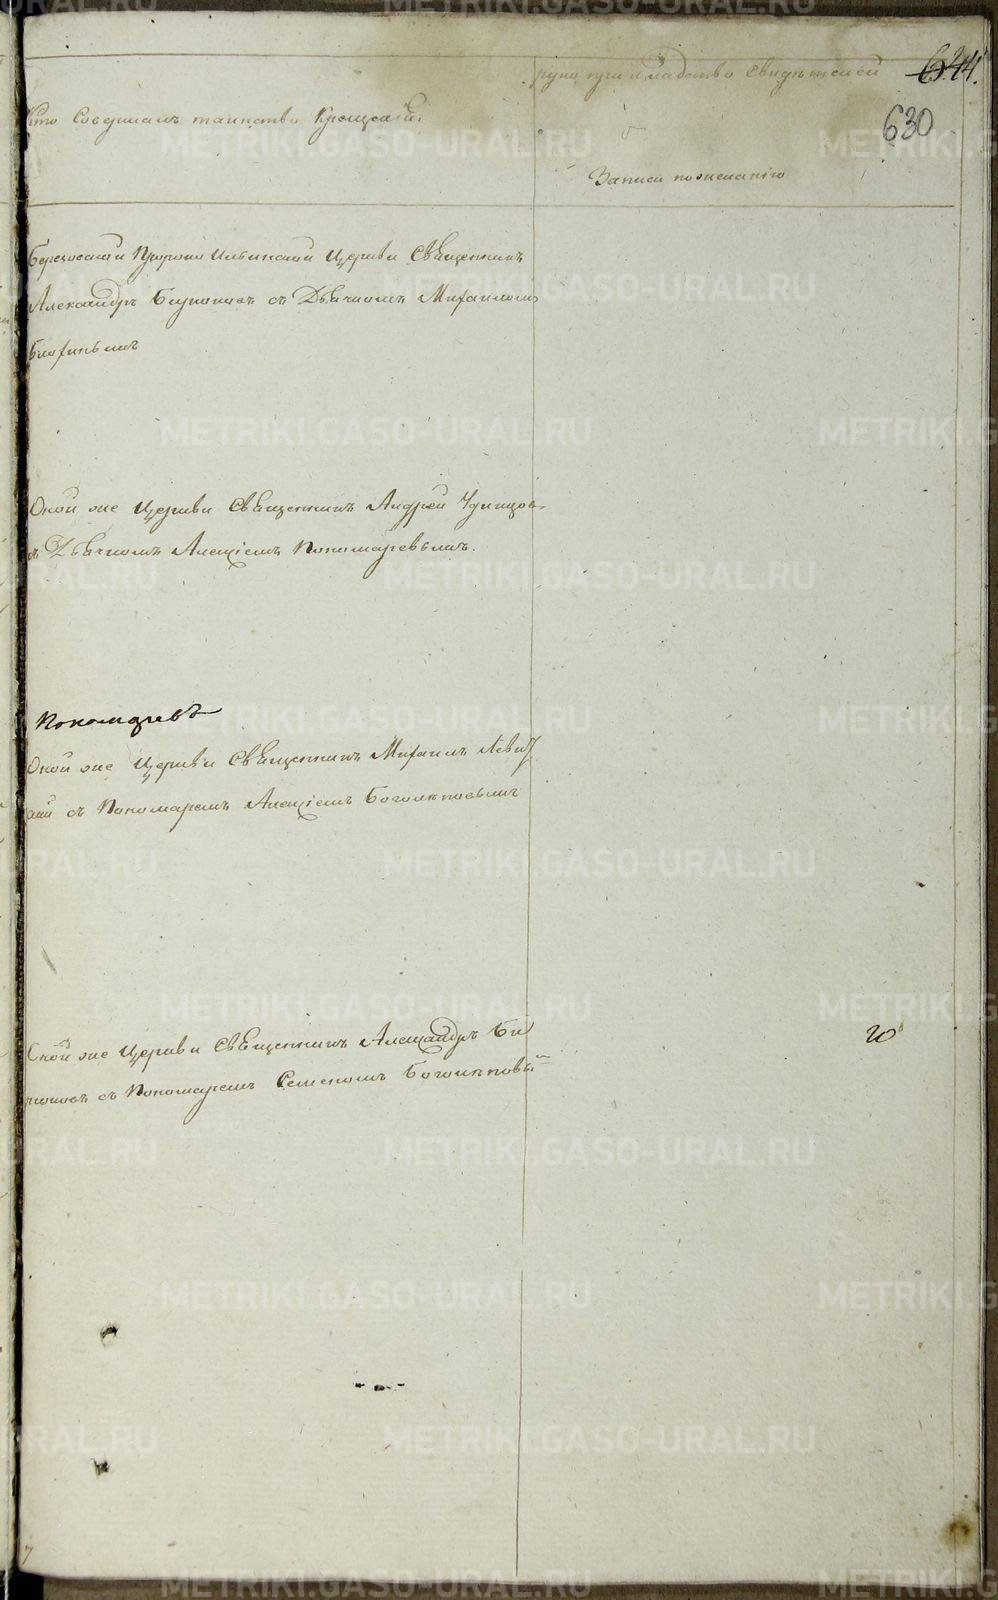 644.
630
Кто Совершалъ таинство Крещенія.
рукоприкладство Свидѣтелей
Записи по желанію
Березовской Пророко Ильинской Церкви Священникъ
Александръ с Дьячкомъ Михаиломъ
Оной же Церкви Священникъ Андрей Удинцов
съ Дьячкомъ Алексіемъ Пономаревымъ.
Пономаревъ
Оной же Церкви Священникъ Михаилъ Левиц
кий съ Пономаремъ Алексіемъ Боголеповымъ
Оной же Церкви Священникъ Александръ Би
съ Пономаремъ Семеномъ Боголеповы
METRIKI.GASO-URAL.RU